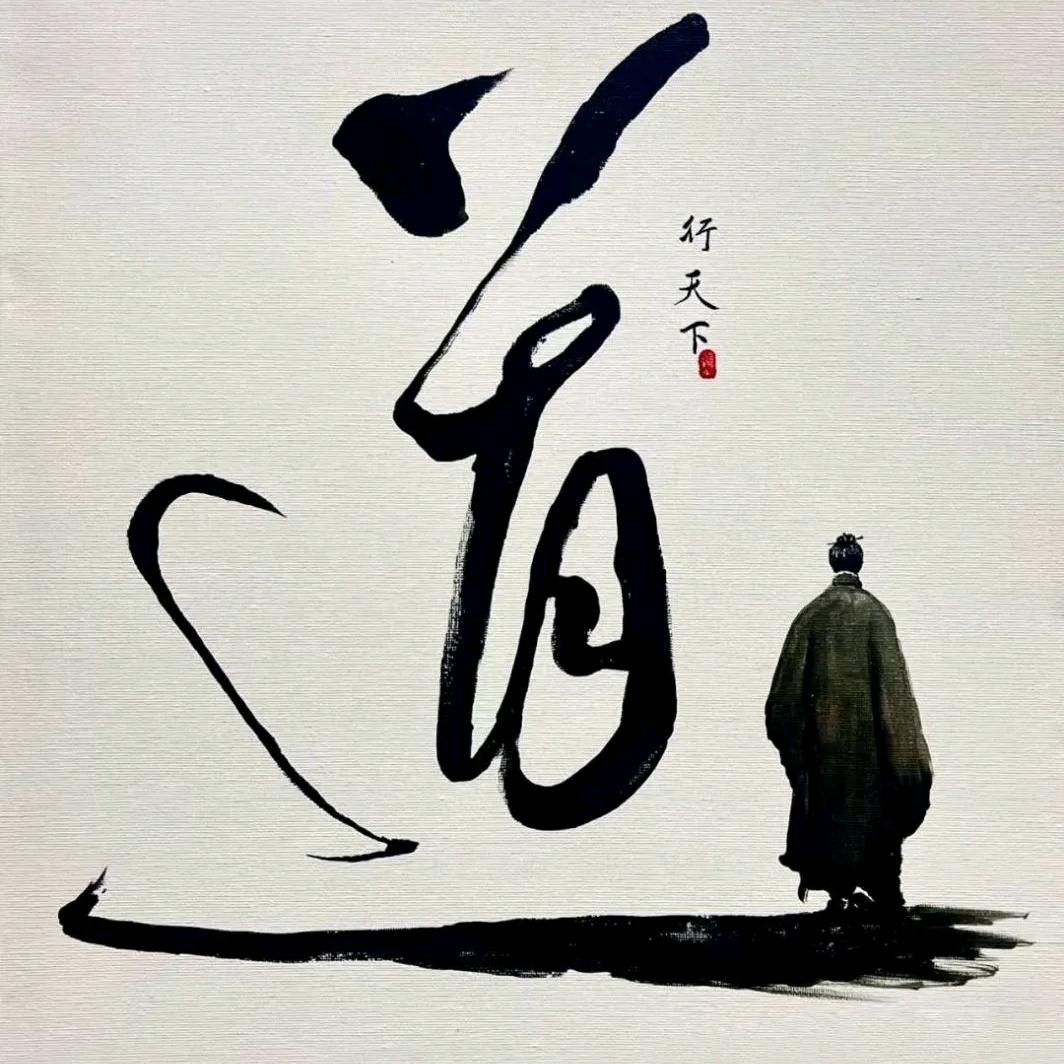 道
行天下